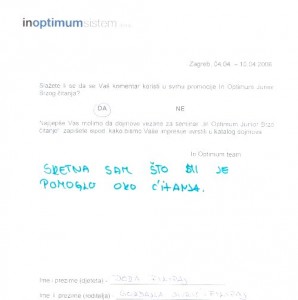 inoptimumsistem
Zagreb, 04.04. - 10.04.2009.
Slažete li se da se Vaš komentar koristi u svrhu promocije In Optimum Junior
Brzog čitanja?
DA NE
Najljepše Vas molimo da dojmove vezane za seminar "In Optimum Junior Brzo
čitanje" zapišete ispod kako bismo Vaše impresije uvrstili u katalog dojmova.
In Optimum team
SRETNA SAM ŠTO MI JE
POMOGLO OKO ČITANJA.
Ime i prezime (djeteta) -
Ime i prezime (roditelja) -